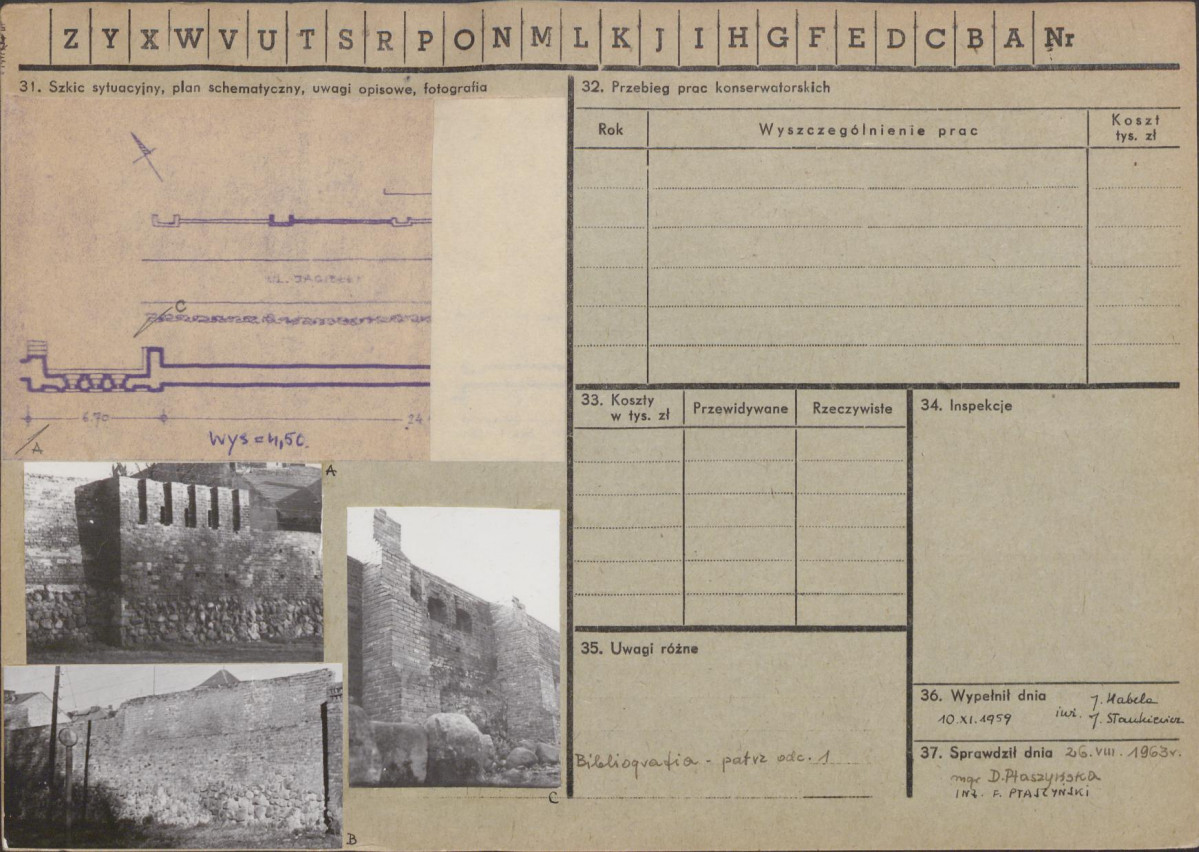 Z Y X W V U T S R P O N M L K J I H G F E D C B A Nr
31. Szkic sytuacyjny, plan schematyczny, uwagi opisowe, fotografia
C
6.70
24
Wys = 4,50.
A
A
B
C
32. Przebieg prac konserwatorskich
Rok
Wyszczególnienie prac
Koszt
tys. zł
33. Koszty
w tys. zł
Przewidywane
Rzeczywiste
34. Inspekcje
35. Uwagi różne
Bibliografia - patrz odc. 1
36. Wypełnił dnia
10.XI.1959
J. Habela
inż. J. Stankiewicz
37. Sprawdził dnia 26.VIII.1963r.
mgr D. Ptaszyńska
INŻ. F. PTASZYŃSKI